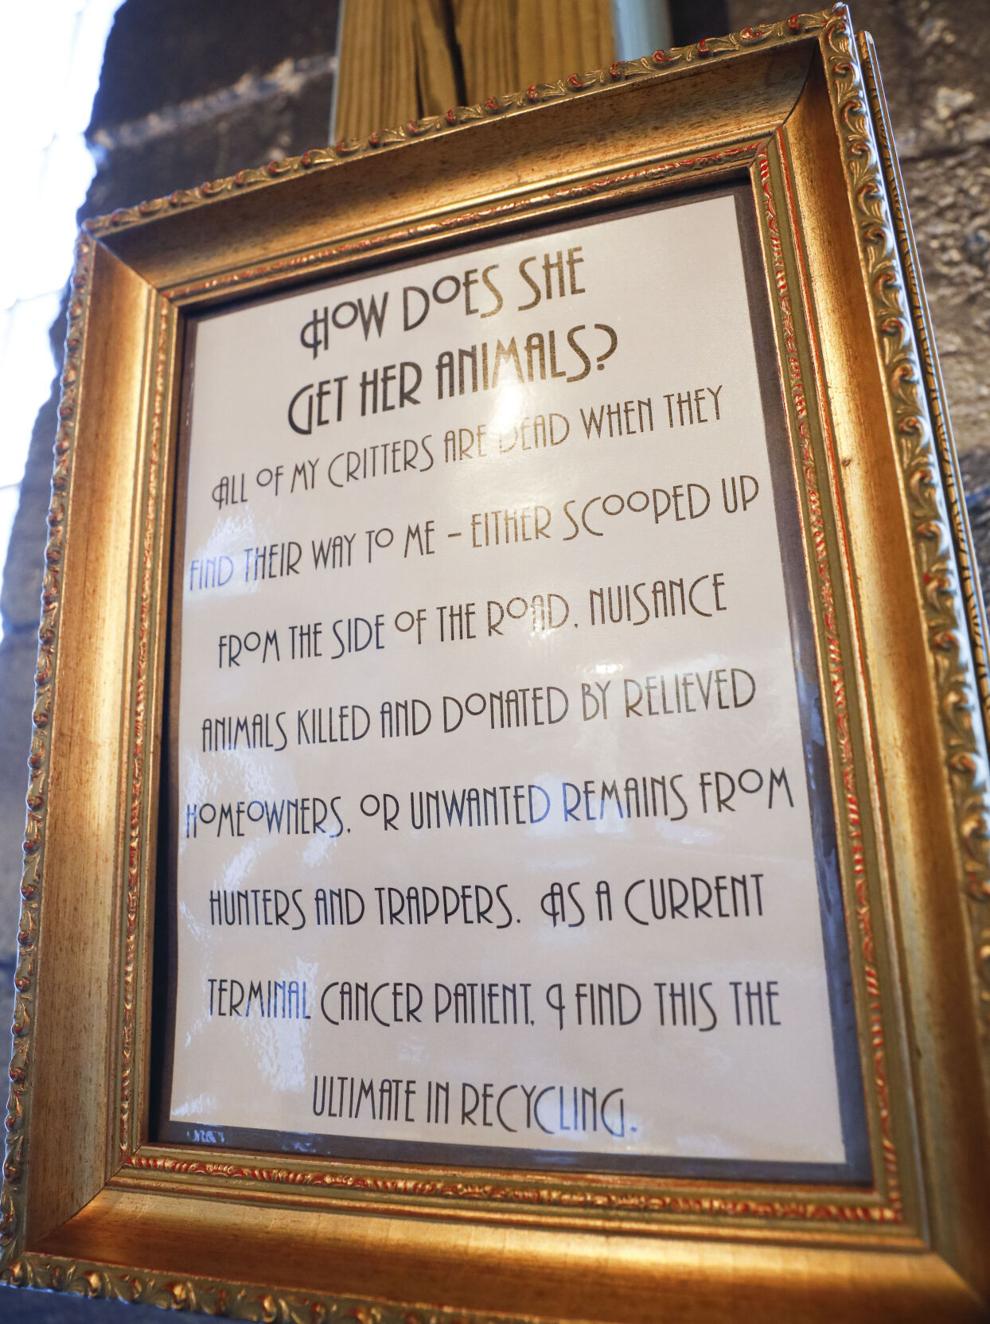 HOW DOES SHE
GET HER ANIMALS?
ALL OF MY CRITTERS ARE DEAD WHEN THEY
FIND THEIR WAY TO ME - EITHER SCOOPED UP
FROM THE SIDE OF THE ROAD, NUISANCE
ANIMALS KILLED AND DONATED BY RELIEVED
HOMEOWNERS, OR UNWANTED REMAINS FROM
HUNTERS AND TRAPPERS. AS A CURRENT
TERMINAL CANCER PATIENT, I FIND THIS THE
ULTIMATE IN RECYCLING.